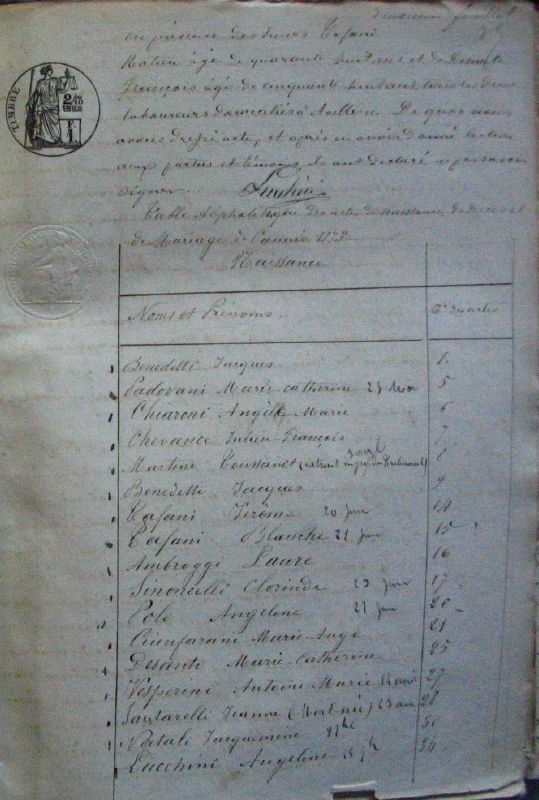 deuxième feuillet
en présence des sieurs Casani
Mathieu âgé de quarante huit ans et de Desanti
François âgé de cinquante huit ans, tous les deux
laboureurs domiciliés à De quoi nous
avons dressé acte, et après en avoir donné lecture
aux parties et témoins, ils ont déclaré ne pas savoir
signer. Lucchini
TIMBRE
2/10 EN SUS
Table Alphabétique des actes de naissance, de décès et
de Mariage de l'année 1873
Naissance
Noms et Prénoms. Nos des actes
Benedetti Jacques 1
Padovani Marie Catherine 5
Chiaroni Angèle Marie 6
Chevance Julien François 7
Martini Toussainte (extrait 8
Benedetti Jacques 9
Casani Jérôme 20 juin 14
Casani Blanche 21 juin 15
Ambroggi Laure 16
Sinoncelli Clorinde 23 juin 17
Polo Angeline 21 juin 20
Cianfarani Marie Ange 21
Desanti Marie Catherine 25
Vesperini Antoine Marie 27
Santarelli Jeanne (Mort-née) 28
Natali Jacquemine 30
Lucchini Angeline 34